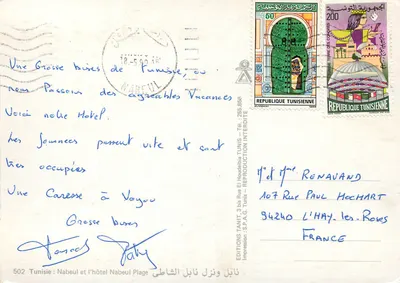 Une Grosse bises de Tunisie, ou
nous passons des agréables vacances
Voici notre Hotel.
Les journées passent vite et sont
très occupées
Une Caresse à Voyou
Grosse bises
502 Tunisie : Nabeul et l'hôtel Nabeul Plage نابل ونزل نابل الشاطئ
EDITIONS TANIT
REPRODUCTION INTERDITE
NABEUL
60
REPUBLIQUE TUNISIENNE
200
REPUBLIQUE TUNISIENNE
Mr et Mme RENAVAND
107 RUE PAUL HOCHART
94240 L'HAY-les-Roses
FRANCE